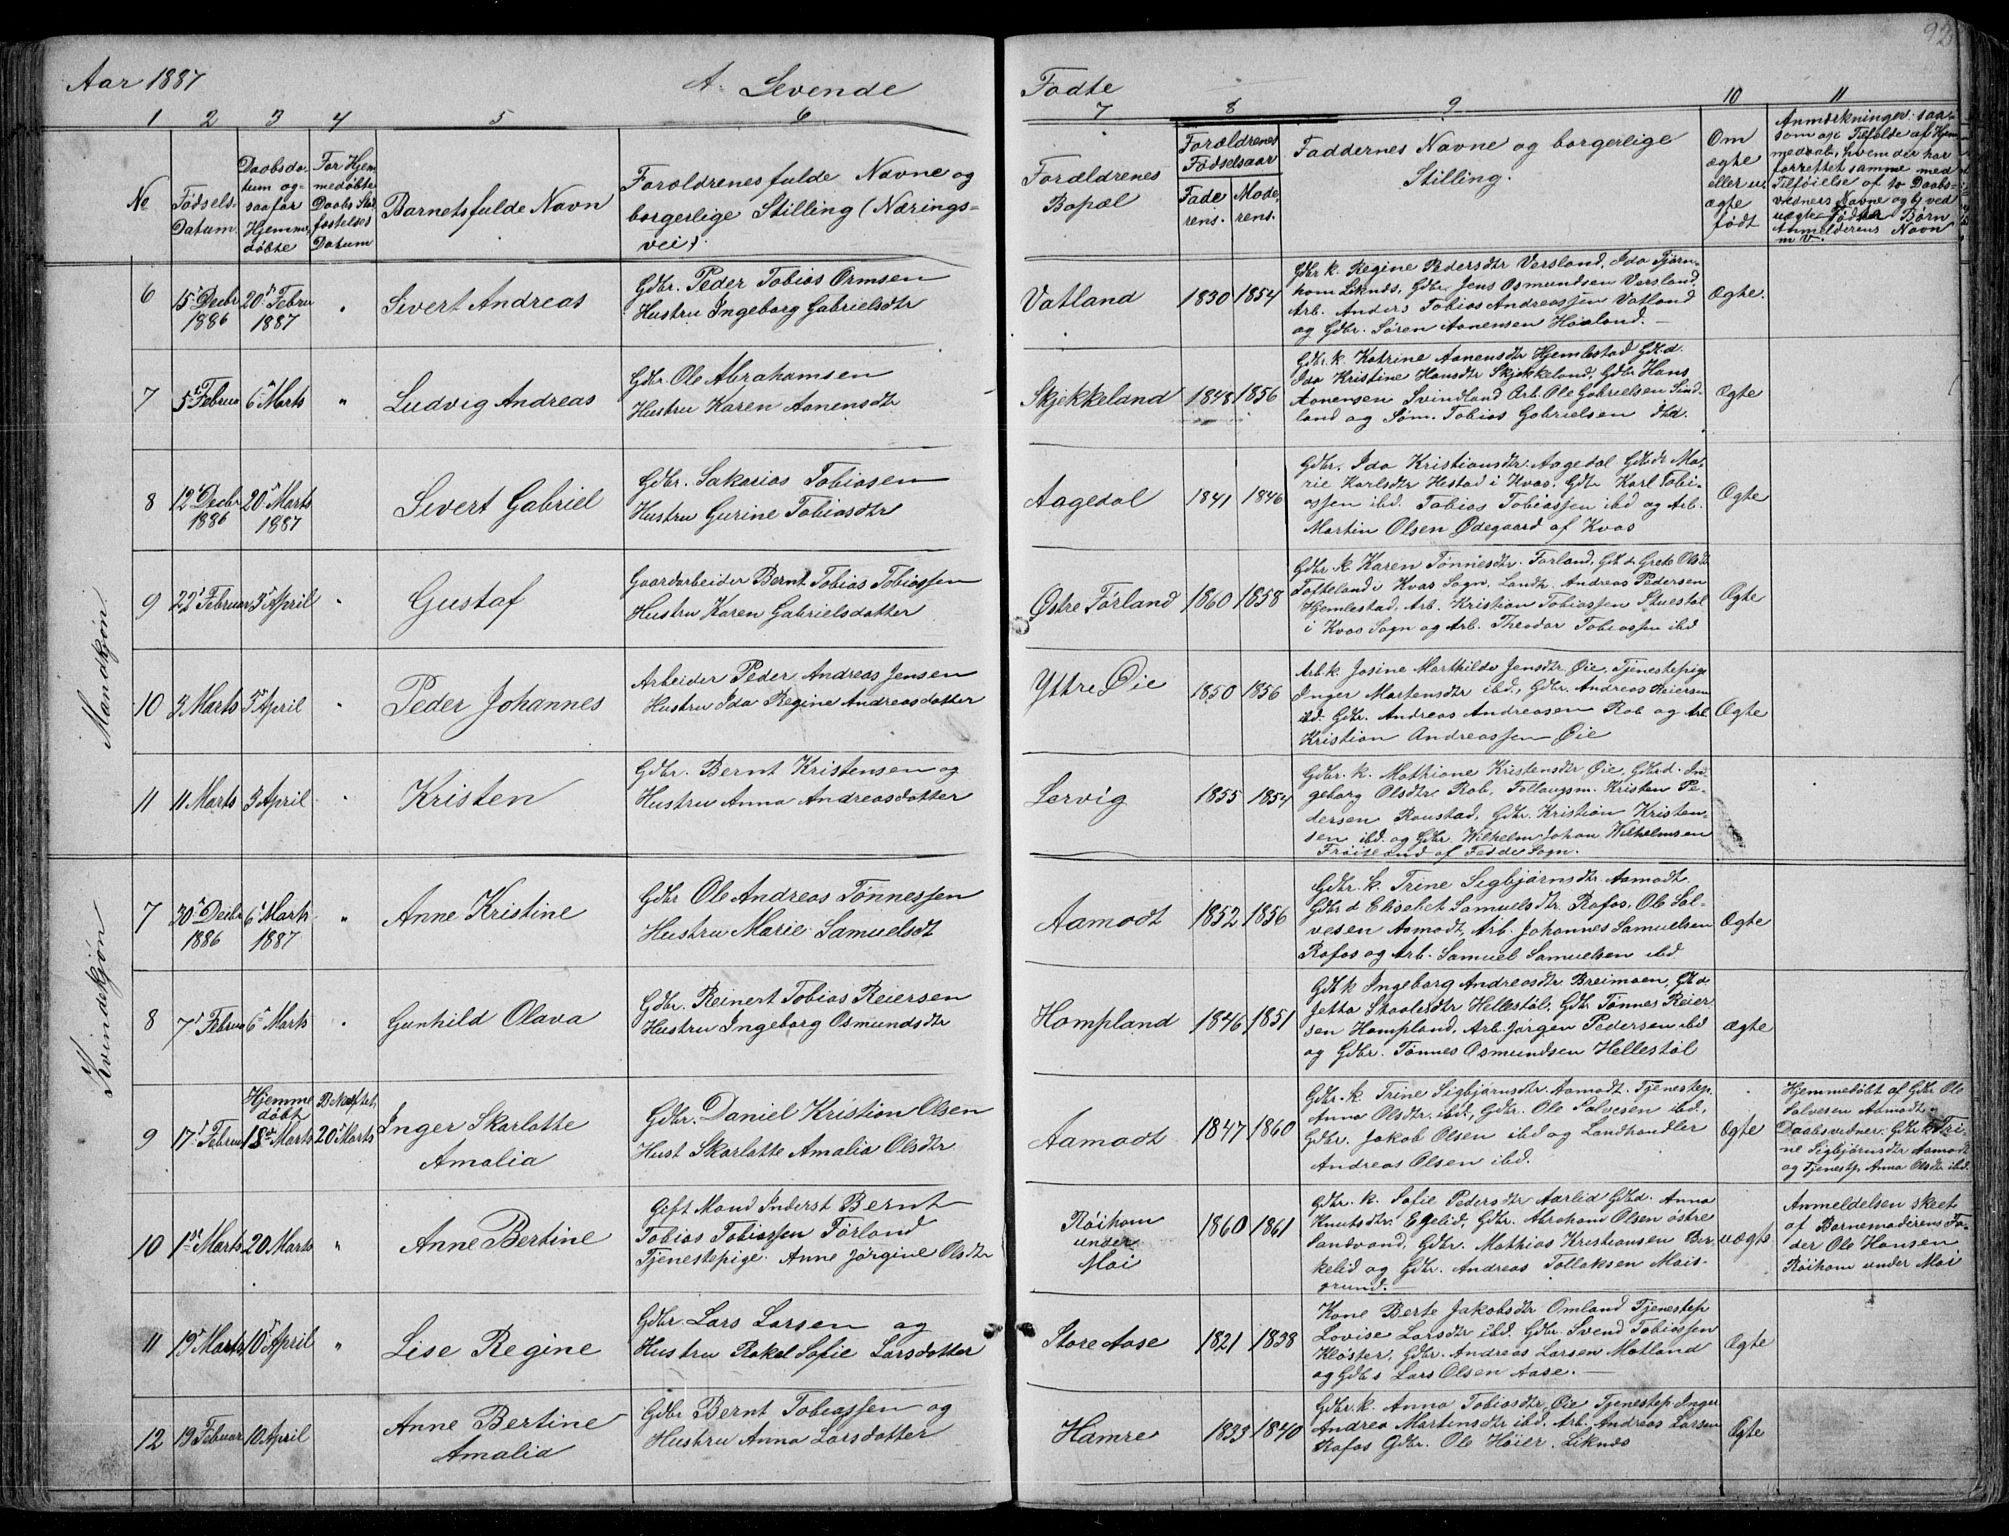 92
Aar 1887
A. Levende
Fødte
1 2 3 4 5 6
7 8 9 10 11
No
Fødsels-
Datum.
Daabsda-
tum og-
saa for
Hjemme-
døbte
For Hjem-
medøbte
Daabs Stad-
fæstelses
Datum
Barnets fulde Navn
Forældrenes fulde Navne og
borgerlige Stilling (Nærings-
vei).
Forældrenes
Bopæl
Forældrenes
Fødselsaar
Fade-
rens.
Mode-
rens.
Faddernes Navne og borgerlige
Stilling.
Om
ægte
eller u-
ægte
født
Anmærkninger saa-
som i Tilfælde af Hjem-
medaab, hvem der har
forrettet samme med
Tilføielse af to Daabs-
vidners Navne og ved
uægte Fødte Børn
Anmelderens Navn
m. v.
Mandkjøn
6
15 Decbr
1886
20 Febru
1887
"
Sivert Andreas
Gdbr. Peder Tobias Ormsen
Hustru Ingeborg Gabrielsdtr
Vatland
1830 1854
Gdbr k. Regine Pedersdtr Versland, Ida Tjørn-
hom Liknes, Gdbr Jens Osmundsen Versland,
Arb. Anders Tobias Andreassen Vatland
og Gdbr. Søren Aanensen Haaland.
Ægte.
7
5 Februa
6 Marts
"
Ludvig Andreas
Gdbr. Ole Abrahamsen
Hustru Karen Aanensdtr
Skjekkeland
1848 1856
Gdbr. k. Katrine Aanensdtr Hjemlestad Gdb.d.
Ida Kristine Hansdtr Skjekkeland, Gdbr Hans
Aanensen Svindland Arb. Ole Gabrielsen Sind-
land og Søm. Tobias Gabrielsen ibd.
Ægte
8
12 Decbr
1886
20 Marts
1887
Sivert Gabriel
Gdbr. Sakarias Tobiasen
Hustru Gurine Tobiasdtr
Aagedal
1841 1846
Gdbr. Ida Kristiansdtr Aagedal Gdb d. Ma-
rie Karlsdtr Hestad i Kvas, Gdbr Karl Tobi-
assen ibd Tobias Tobiassen ibd og Arb.
Martin Olsen Ødegaard af Kvas
Ægte
9
22 Februar
3 April
"
Gustaf
Gaardarbeider Bernt Tobias Tobiassen
Hustru Karen Gabrielsdatter
Østre Førland
1860 1858
Gdbr k Karen Tønnesdtr. Førland, Gdb d Grete Olsd
Tofteland i Kvas Sogn, Landh. Andreas Pedersen
Hjemlestad, Arb. Kristian Tobiassen Stuestøl
i Kvas Sogn og Arb. Theodor Tobiassen ibd
Ægte
10
3 Marts
3 April
"
Peder Johannes
Arbeider Peder Andreas Jensen
Hustru Ida Regine Andreasdatter
Yttre Øie
1850 1856
Arb. k. Josine Marthilde Jensdtr Øie, Tjenestepige
Inger Martensdtr ibd, Gdbr. Andreas Reiersen
ibd. Gdbr. Andreas Andreasen Rob og Arb.
Kristian Andreassen Øie
Ægte
11
11 Marts
3 April
"
Kristen
Gdbr. Bernt Kristensen og
Hustru Anna Andreasdatter
Lervig
1855 1854
Gdbr. k. Mathiane Kristensdtr Øie, Gdbr d. In-
geborg Olsdtr Rob, Toldopsm. Kristen Pe-
dersen Raustad, Gdbr. Kristian Kristen-
sen ibd. og Gdbr. Wilhelm Johan Wilhelmsen
Frøiseland af Fedde Sogn.
Kvindekjøn
7
30 Decbr
1886
6 Marts
1887
"
Anne Kristine
Gdbr Ole Andreas Tønnessen
Hustru Marie Samuelsdt
Aamodt
1852 1856
Gdbr. k. Trine Sigbjørnsdtr Aamodt,
Gdbr d Elisabet Samuelsdtr Rafos, Ole Sal-
vesen Aamodt, Arb. Johannes Samuelsen
Rafos og Arb. Samuel Samuelsen ibd.
Ægte
8
7 Februa
6 Marts
"
Gunhild Olava
Gdbr. Reinert Tobias Reiersen
Hustru Ingeborg Osmundsdtr
Hompland
1846 1851
Gdb k Ingeborg Andreasdtr Breimoen, Gdb d
Jetta Skaalesdtr Hellestøl, Gdbr Tønnes Reier-
sen Hompland, Arb. Jørgen Pedersen ibd
og Gdbr. Tønnes Osmundsen Hellestøl
Ægte
9
17 Februa
Hjemme
døbt
18de Marts
20 Marts
Inger Skarlotte
Amalia
Gdbr. Daniel Kristian Olsen
Hust Skarlotte Amalia Olsdtr.
Aamodt
1847 1860
Gdbr. k. Trine Sigbjørnsdtr. Aamodt. Tjenestep.
Anna Olsdtr. ibd., Gdbr. Ole Salvesen ibd,
Gdbr. Jakob Olsen ibd og Landhandler
Andreas Olsen ibd.
Ægte
Hjemmedøbt af Gdbr Ole
Salvesen Aamodt.
Daabsvidner: Gdbr k Tri-
ne Sigbjørnsdtr Aamodt
og Tjenestep. Anna Olsdtr ibd.
10
1ste Marts
20. Marts
"
Anne Bertine
Gift Mand Inderst Bernt
Tobias Tobiassen Førland
Tjenestepige Anne Jørgine Olsdtr
Røihom
under
Moi
1860 1861
Gdbr. k. Sofie Pedersdtr Aarlid Gdb.d. Anna
Knutsdtr. Egelid, Gdbr. Abraham Olsen østre
Sandvand, Gdbr. Mathias Kristiansen Bir-
kelid og Gdbr. Andreas Tollaksen Mois-
grund.
uægte
Anmeldelsen skeet
af Barnemoderens Fa-
der Ole Hansen
Røihom under Moi
11
19 Marts
10 April
"
Lise Regine
Gdbr. Lars Larsen og
Hustru Rakel Sofie Larsdatter
Store Aase
1821 1838
Kone Berte Jakobsdtr Omland Tjenestep
Lovise Larsdtr ibd. Gdbr. Svend Tobiassen
Kløster, Gdbr. Andreas Larsen Matland
og Gdbs Lars Olsen Aase.
Ægte
12
19 Februar
10 April
Anne Bertine
Amalia
Gdbr Bernt Tobiassen og
Hustru Anna Larsdatter
Hamre
1833 1840
Gdbr. k. Anna Tobiasdtr Øie Tjenestep Inger
Andrea Martinsdtr ibd. Arb. Andreas Larsen
Rafos Gdbr. Ole Høier. Liknes
Ægte